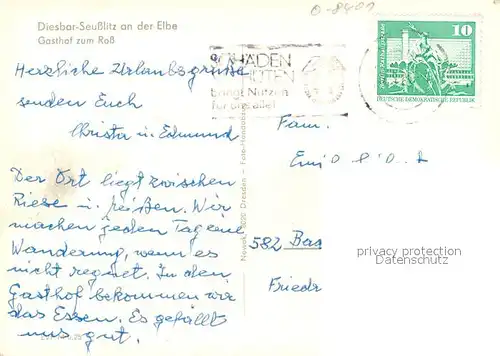 Diesbar-Seußlitz an der Elbe
Gasthof zum Roß
0-8401
10
DEUTSCHE DEMOKRATISCHE REPUBLIK
SCHÄDEN
VERHÜTEN
bringt Nutzen
für uns alle!
Herzliche Urlaubsgrüße
senden Euch
Christa u. Edmund
Der Ort liegt zwischen
Riesa u. Meißen. Wir
machen jeden Tag eine
Wanderung, wenn es
nicht regnet. In den
Gasthof bekommen wir
das Essen. Es gefällt
uns gut.
8020 Dresden - Foto-Handabzug
Fam.
Emi
582 Ba
Friedr
privacy protection
Datenschutz